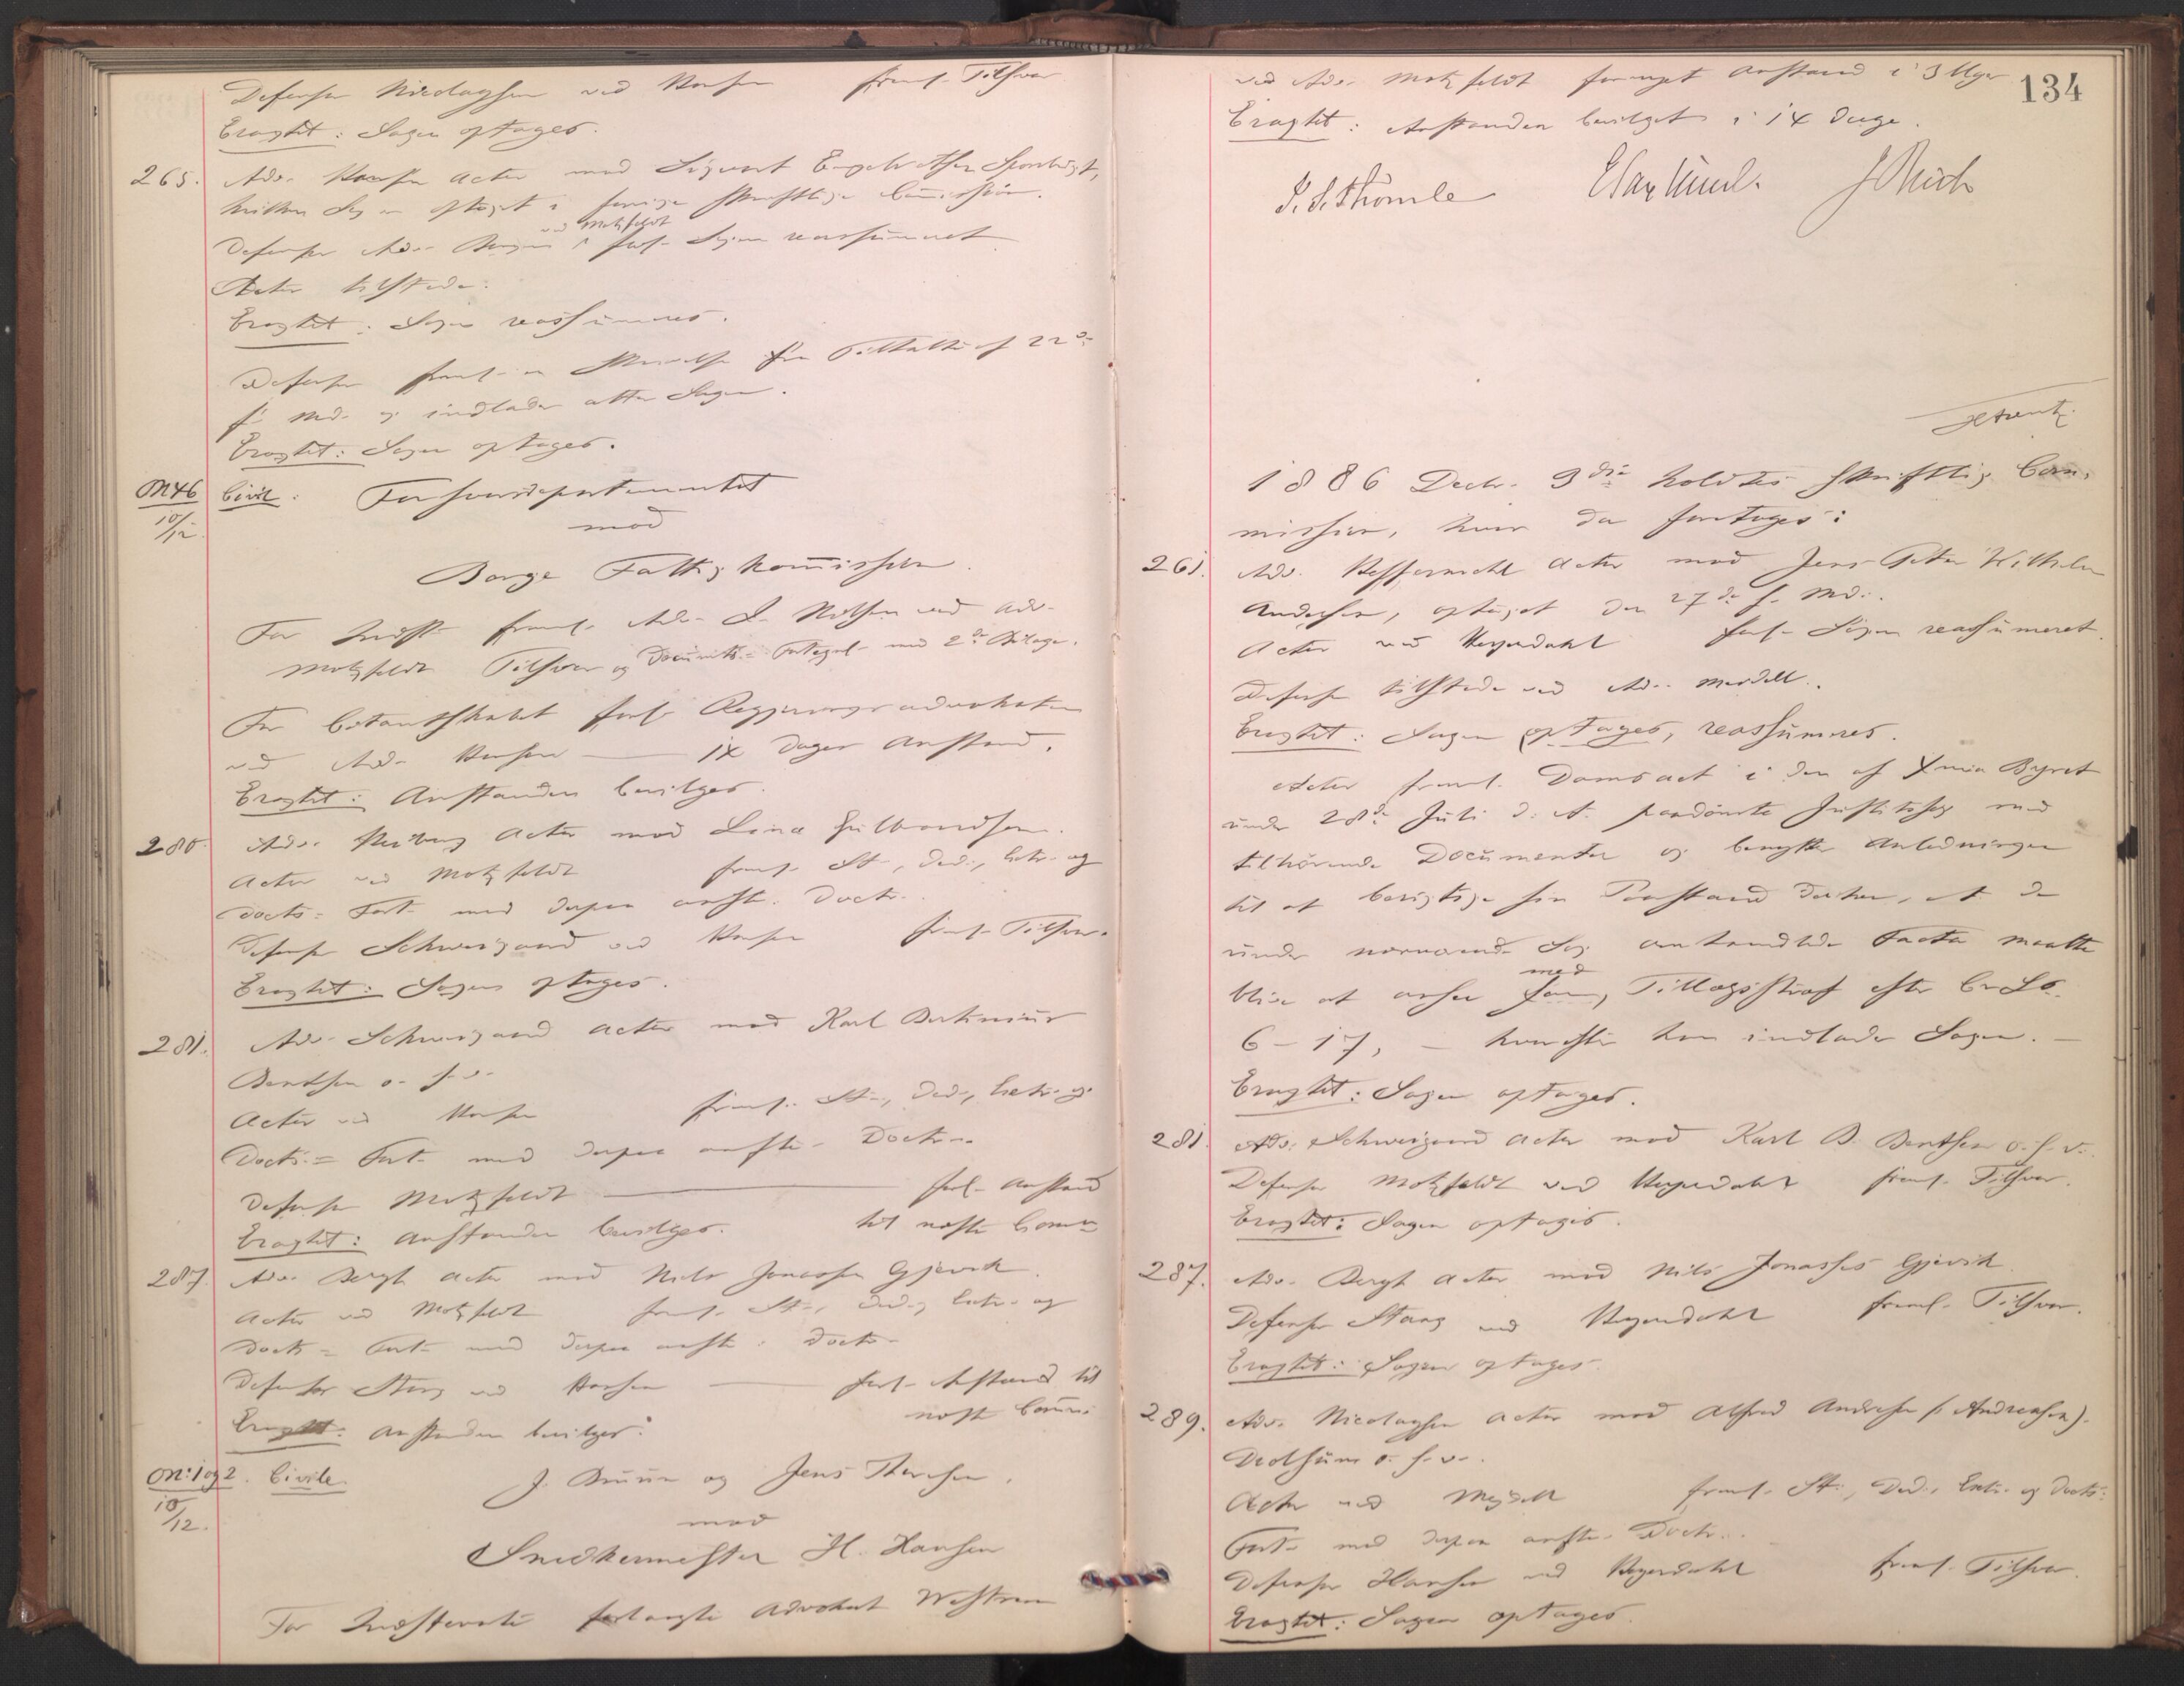 Defensor Nicolaysen ved Hansen freml. Tilsvar
Eragtet: Sagen optages.
265. Adv. Hansen Actor mod Sigvart Engebretsen
hvilken Sag er optaget i forrige skriftlige Commission.
Defensor Adv. ved Motzfeldt forl. Sagen reassumeret
Actor tilstede.
Eragtet: Sagen reassumeres.
Defensor freml. en Skrivelse fra Tiltalte af 22de
f. Md. og indlader atter Sagen.
Eragtet: Sagen optages.
N 46 Civil: Forsvarsdepartementet
10/12
mod
Borge Fattigkommission.
For Indst. freml. Adv. Nilsen ved Adv.
Motzfeldt Tilsvar og Documts. = Fortegnl. med 2de Bilage.
For Citantskabet forl. Regjeringsadvokaten
ved Adv. Hansen — 14 Dages Anstand.
Eragtet: Anstanden bevilges.
280. Adv. Actor mod Lina Gulbrandsen.
Actor ved Motzfeldt freml. St., Ded., Extr. og
Docts. = Fort. med derpaa anft. Doctr.
Defensor Schweigaard ved Hansen freml. Tilsvar.
Eragtet: Sagen optages.
281. Adv. Schweigaard Actor mod Karl
Bentsen o. s. v.
Actor ved Hansen freml. St., Ded., Extr. og
Docts. = Fort. med derpaa anfte. Doctr.
Defensor Motzfeldt — forl. Anstand
Eragtet: Anstanden bevilges. til næste Comm.
287. Adv. Bergh Actor mod Nils Jonassen Gjervik.
Actor ved Motzfeldt freml. St., Ded., Extr. og
Docts. = Fort. med derpaa anfte. Doctr.
Defensor Stang ved Hansen — forl. Anstand til
Eragtet: Anstanden bevilges. næste Comm.
N: 1 og 2. Civile. J. Bruun og Jens Thoresen.
10/12.
mod
Snedkermester H. Hansen
For Indstevnte forlangte Advokat
134
ved Adv. Motzfeldt fornyet Anstand i 3 Uger
Eragtet: Anstanden bevilget i 14 Dage.
1886 Decbr. 3die holdtes skriftlig Com-
mission, hvor da foretoges:
261. Adv. Actor mod Jens Peter Wilhelm
Andersen, optaget den 27de f. Md.
Actor ved Heyerdahl forl. Sagen reassumeret.
Defensor tilstede ved Adv. Mejdell.
Eragtet: Sagen optages, reassumeres.
Actor freml. Domsact i den af Xnia Byret
under 28de Juli d. A. paadømte Justitssag med
tilhørende Documenter og benytter Anledningen
til at berigtige sin Paastand derhen, at de
under nærværende Sag omhandlede Facta maatte
blive at anse med Tillægsstraf efter Cr. L.
6 – 17, — hvorefter han indlader Sagen. —
Eragtet: Sagen optages.
281. Adv. Schweigaard Actor mod Karl B. Bentsen o. s. v.
Defensor Motzfeldt ved Heyerdahl freml. Tilsvar.
Eragtet: Sagen optages.
287. Adv. Bergh Actor mod Nils Jonassen Gjervik
Defensor Stang ved Heyerdahl freml. Tilsvar.
Eragtet: Sagen optages.
289. Adv. Nicolaysen Actor mod Alfred Andersen (: Andreasen).
o. s. v.
Actor ved Mejdell freml. St., Ded., Extr. og Docts.
Fort. med derpaa anfte. Doctr.
Defensor Hansen ved Heyerdahl freml. Tilsvar.
Eragtet: Sagen optages.